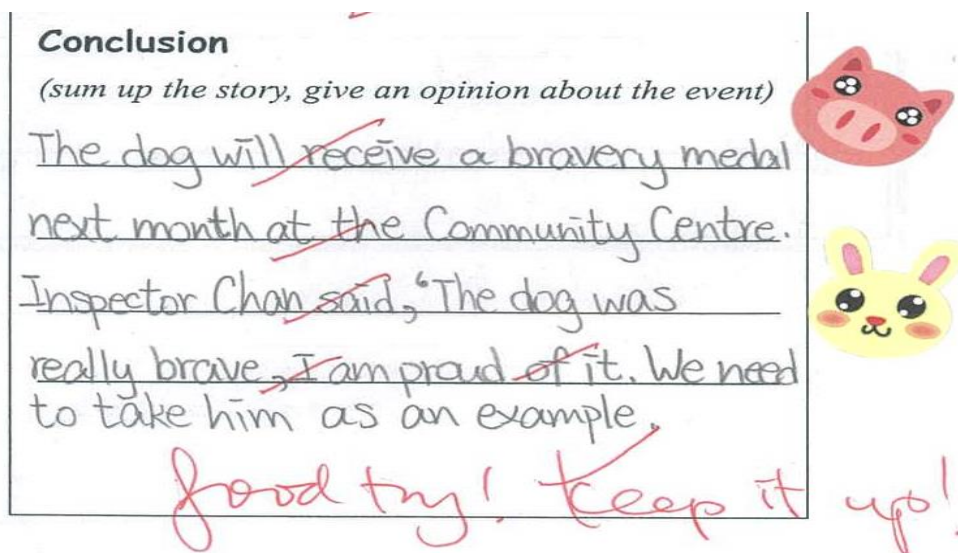 Conclusion
(sum up the story, give an opinion about the event)
The dog will receive a bravery medal
next month at the Community Centre.
Inspector Chan said, "The dog was
really brave, I am proud of it. We need
to take him as an example.
Good try! Keep it up!